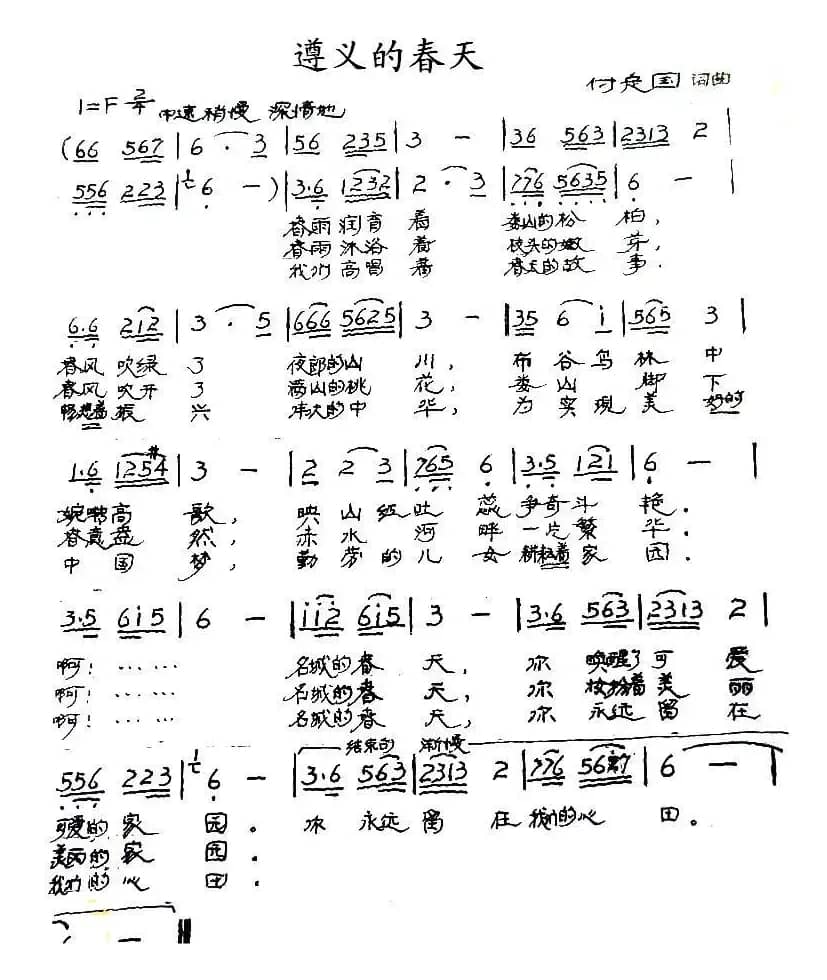 遵义的春天
付定国 词曲
1=F 2/4 中速稍慢 深情地
(66 567 | 6 · 3 | 56 235 | 3 － | 36 563 | 2313 2 |
556 223 | 6 －) | 3·6 1232 | 2 · 3 | 776 5635 | 6 － |
春雨润育着 娄山的松柏,
春雨沐浴着 枝头的嫩芽,
我们高唱着 春天的故事.
6·6 212 | 3 · 5 | 666 5625 | 3 － | 35 6 i | 565 3 |
春风吹绿了 夜郎的山川, 布谷鸟林中
春风吹开了 满山的桃花, 娄山脚下
畅想着振兴 伟大的中华, 为实现美好的
1·6 1254 | 3 － | 2 2 3 | 765 6 | 3·5 121 | 6 － |
婉啭高歌, 映山红吐蕊争奇斗艳.
春意盎然, 赤水河畔一片繁华.
中国梦, 勤劳的儿女耕耘着家园.
3·5 6i5 | 6 － | ii2 6i5 | 3 － | 3·6 563 | 2313 2 |
啊! …… 名城的春天, 你唤醒了可爱
啊! …… 名城的春天, 你妆扮着美丽
啊! …… 名城的春天, 你永远留在
结束句 渐慢
556 223 | 6 － | 3·6 563 | 2313 2 | 776 56 | 6 － |
可爱的家园. 你永远留在我们的心田.
美丽的家园.
我们的心田.
6 － ||